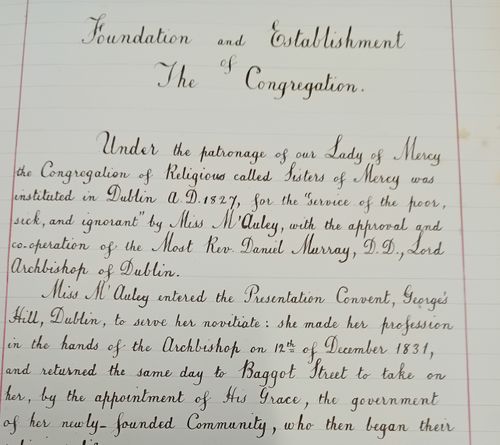 Foundation and Establishment
of
The Congregation.
Under the patronage of our Lady of Mercy
the Congregation of Religious called Sisters of Mercy was
instituted in Dublin A.D. 1827, for the "service of the poor,
sick, and ignorant" by Miss M'Auley, with the approval and
co-operation of the Most Rev. Daniel Murray, D.D., Lord
Archbishop of Dublin.
Miss M'Auley entered the Presentation Convent, George's
Hill, Dublin, to serve her novitiate: she made her profession
in the hands of the Archbishop on 12th of December 1831,
and returned the same day to Baggot Street to take on
her, by the appointment of His Grace, the government
of her newly-founded Community, who then began their